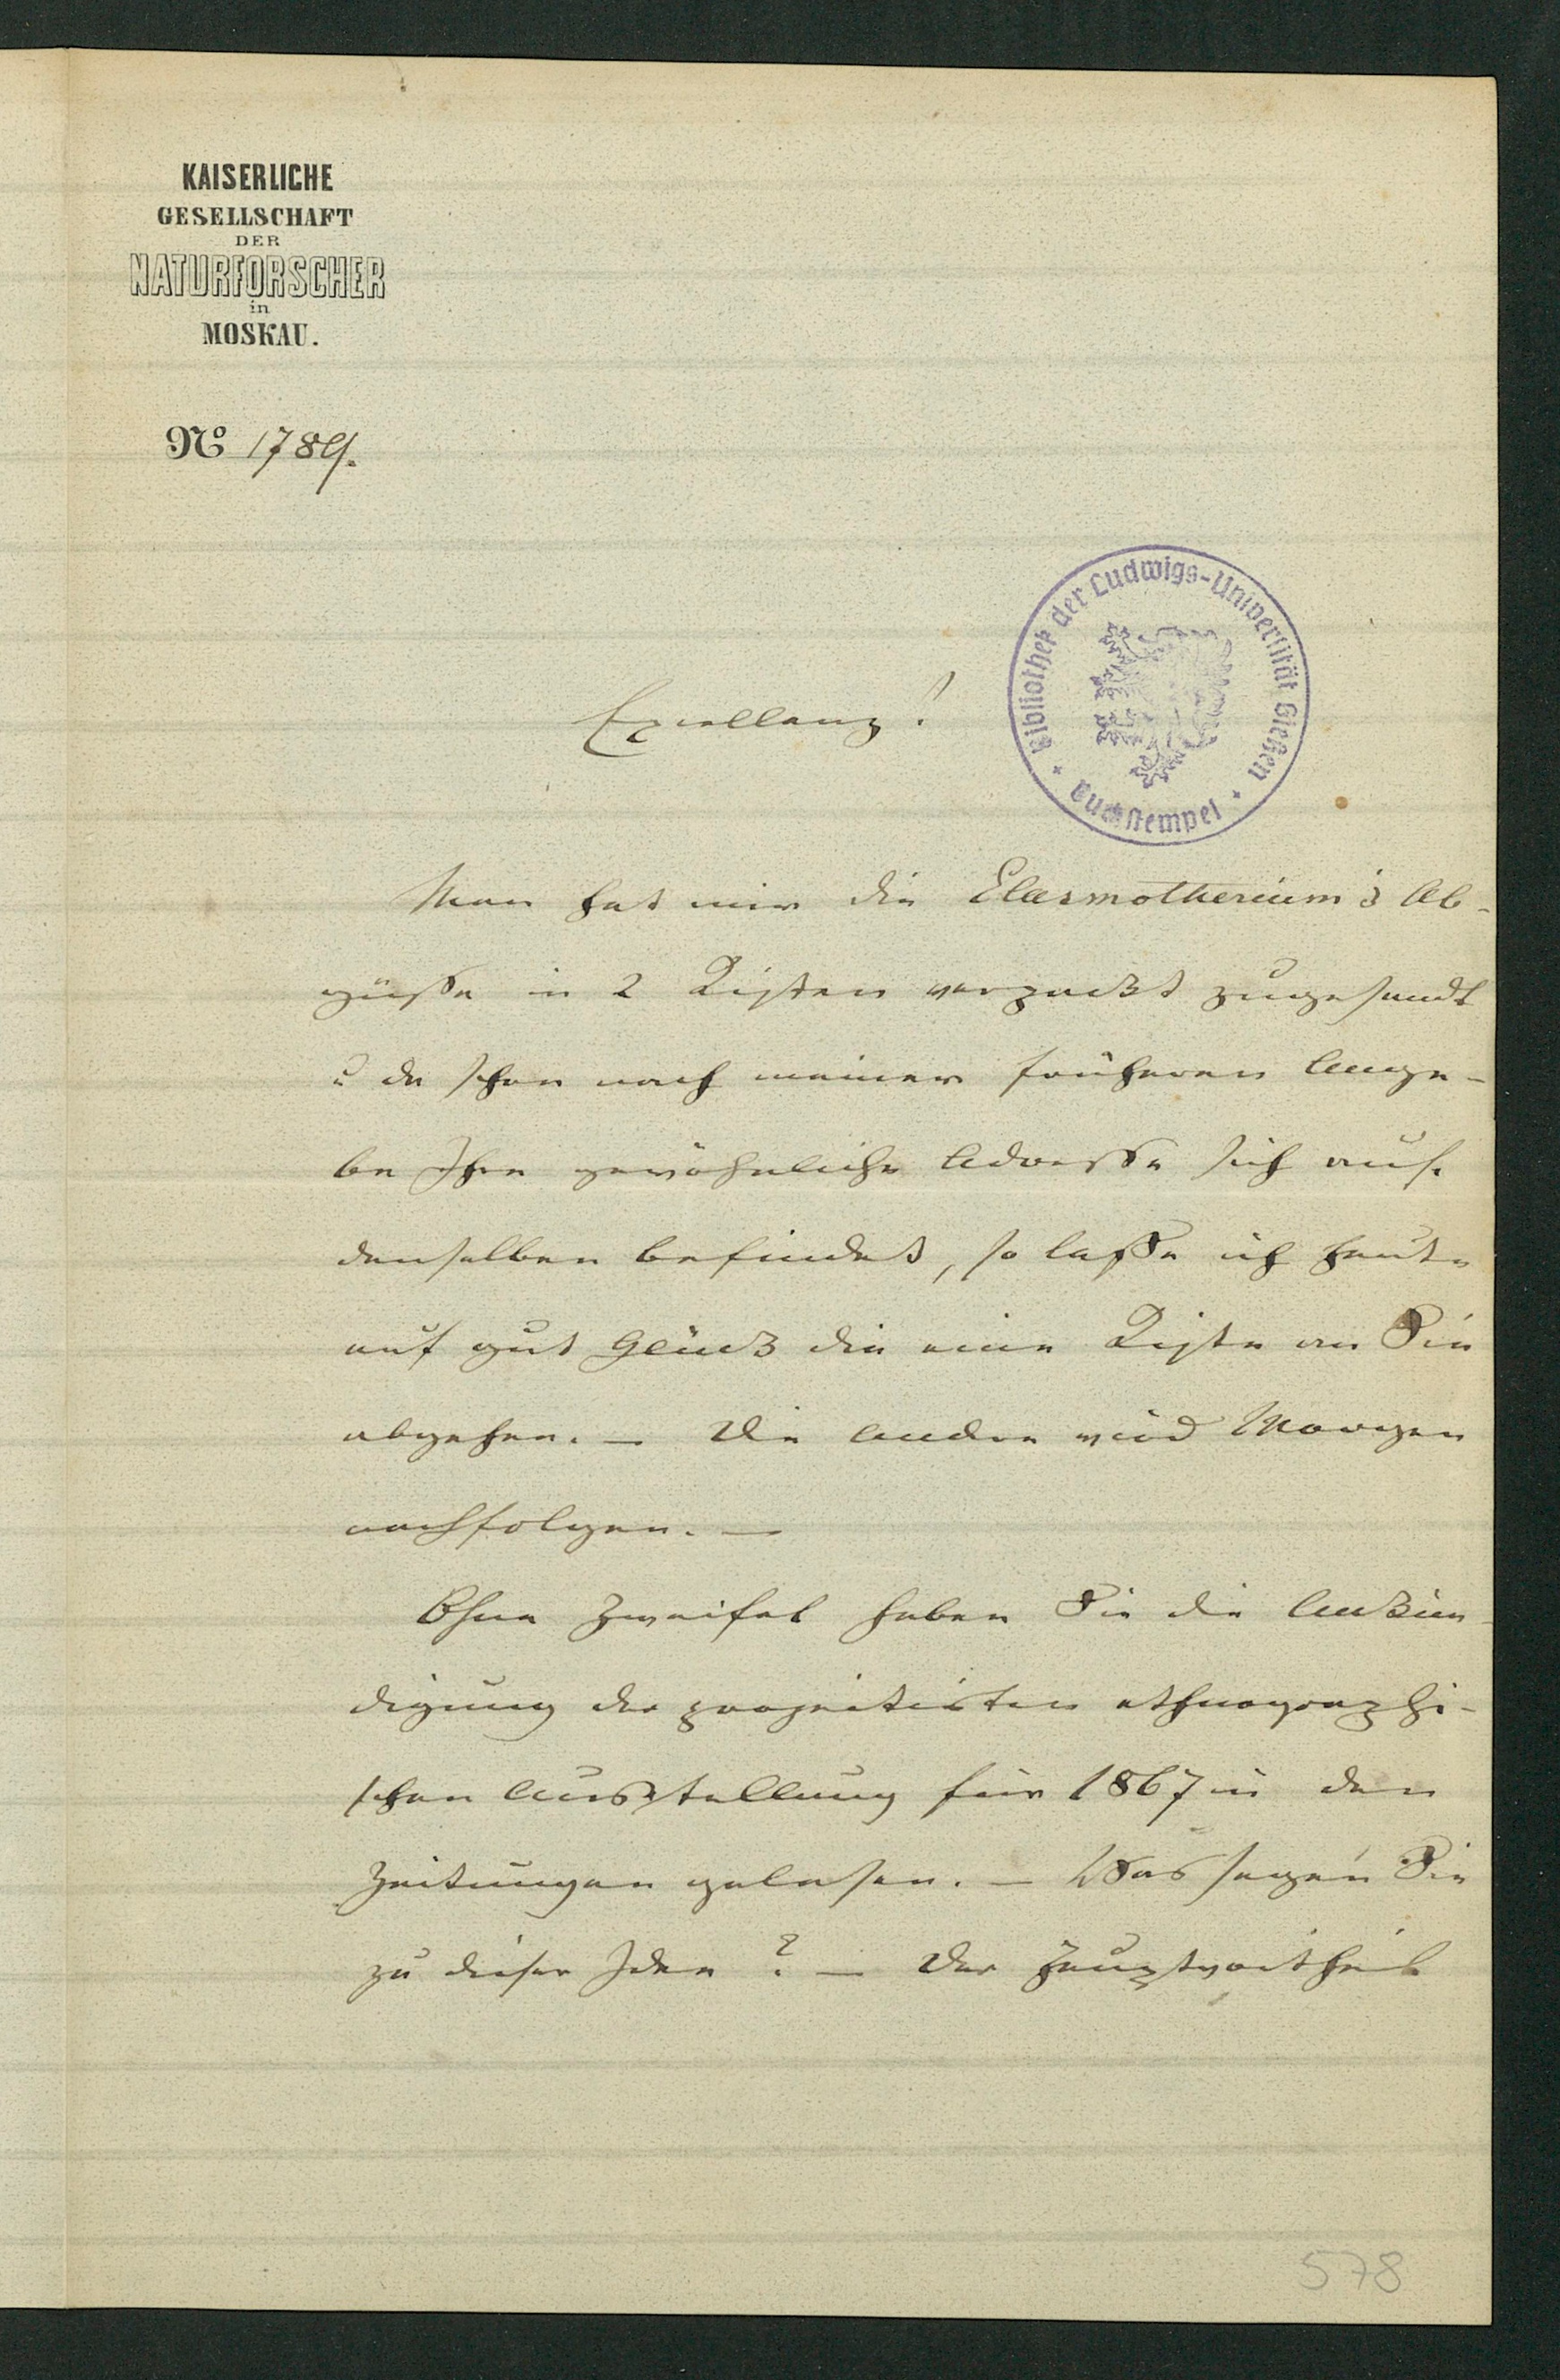 KAISERLICHE
GESELLSCHAFT
DER
NATURFORSCHER
in
MOSKAU.
No 1789.
Bibliothek der Ludwigs-Universität Gießen
Buchstempel
Excellenz!
Man hat mir die Elasmotherium's Ab-
güsse in 2 Kisten verpackt zugesandt
u da schon nach meiner früheren Anga-
be Ihre gewöhnliche Adresse sich auf
denselben befindet, so lasse ich heute
auf gut Glück die eine Kiste an Sie
abgehen. — Die Andre wird Morgen
nachfolgen. —
Ohne Zweifel haben Sie die Ankün-
digung der projectirten ethnographi-
schen Ausstellung für 1867 in den
Zeitungen gelesen. — Was sagen Sie
zu dieser Idee? — Der Hauptvortheil
578